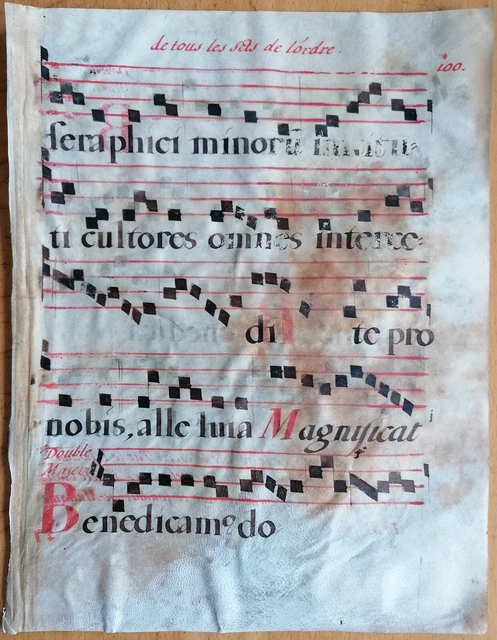 de tous les sᵗˢ de l'ordre.
100.
seraphici minorū
ti cultores omnes interce-
di te pro
nobis, alle luia Magnificat
Double
Majeur
Benedicamꝰ do